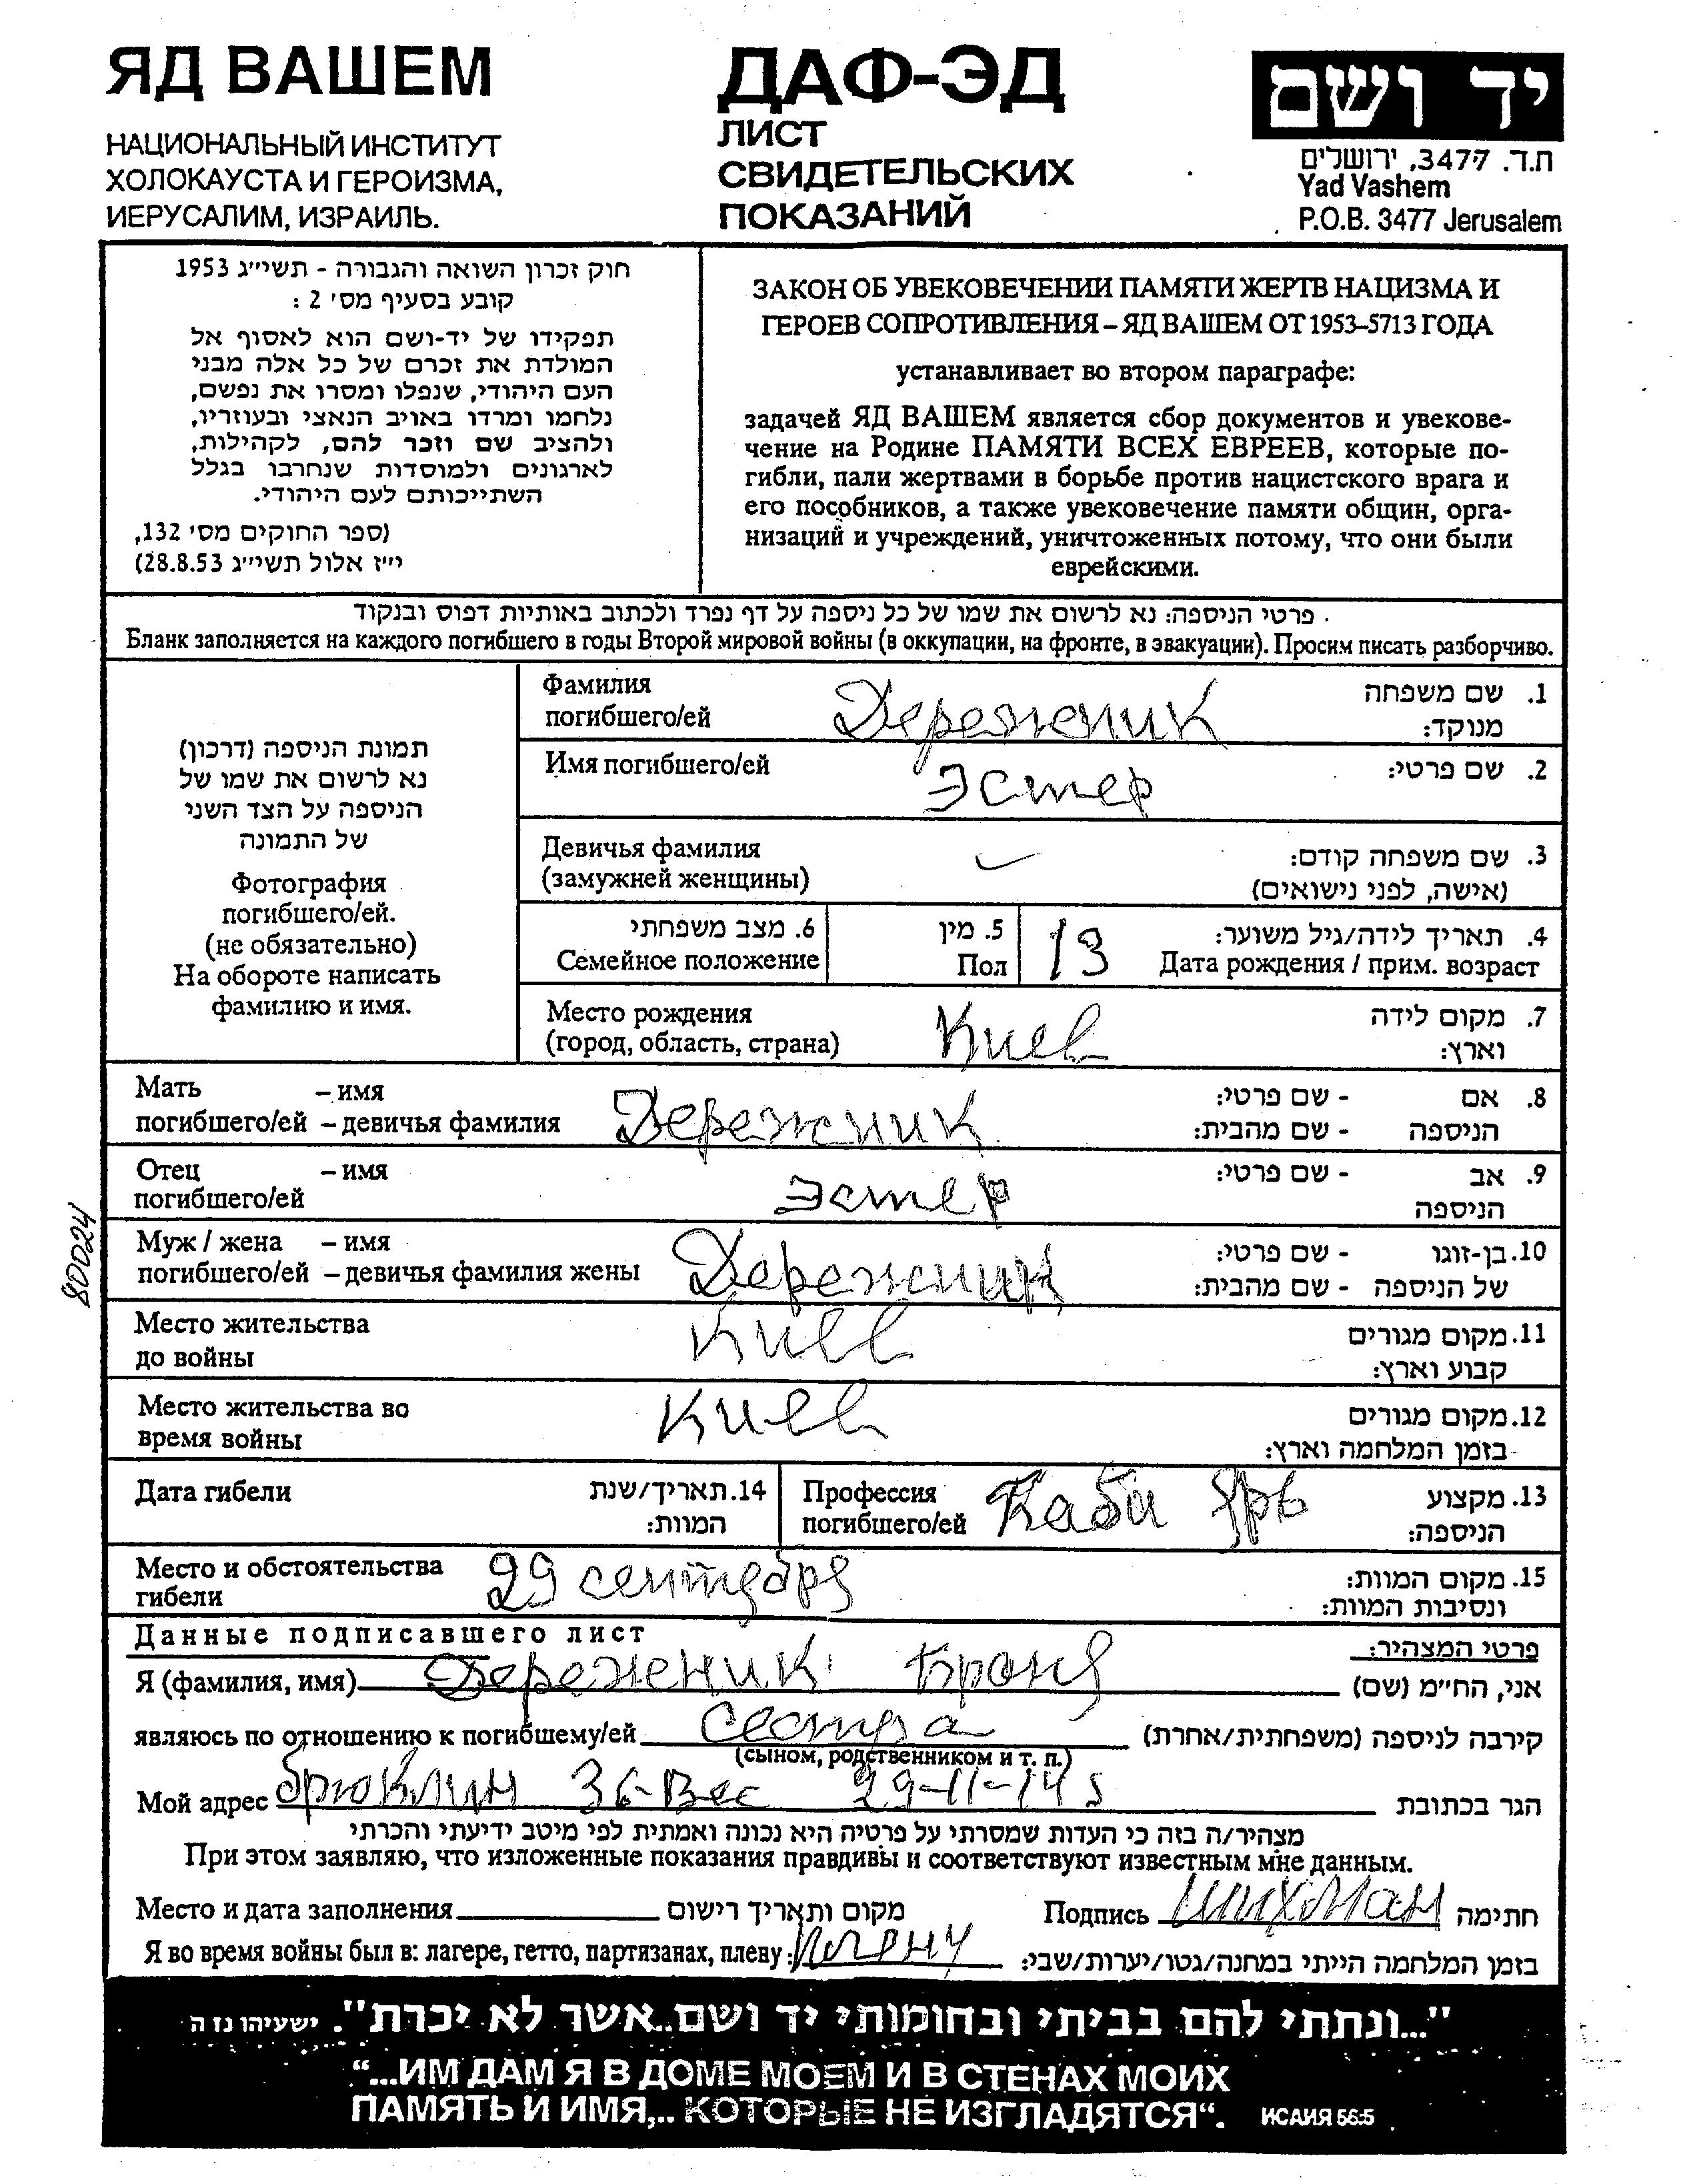 ЯД ВАШЕМ
НАЦИОНАЛЬНЫЙ ИНСТИТУТ
ХОЛОКАУСТА И ГЕРОИЗМА,
ИЕРУСАЛИМ, ИЗРАИЛЬ.
ДАФ-ЭД
ЛИСТ
СВИДЕТЕЛЬСКИХ
ПОКАЗАНИЙ
יד ושם
ת.ד. 3477, ירושלים
Yad Vashem
P.O.B. 3477 Jerusalem
חוק זכרון השואה והגבורה - תשי״ג 1953
קובע בסעיף מס׳ 2 :
תפקידו של יד-ושם הוא לאסוף אל
המולדת את זכרם של כל אלה מבני
העם היהודי, שנפלו ומסרו את נפשם,
נלחמו ומרדו באויב הנאצי ובעוזריו,
ולהציב שם וזכר להם, לקהילות,
לארגונים ולמוסדות שנחרבו בגלל
השתייכותם לעם היהודי.
(ספר החוקים מס׳ 132,
י״ז אלול תשי״ג 28.8.53)
ЗАКОН ОБ УВЕКОВЕЧЕНИИ ПАМЯТИ ЖЕРТВ НАЦИЗМА И
ГЕРОЕВ СОПРОТИВЛЕНИЯ – ЯД ВАШЕМ ОТ 1953–5713 ГОДА
устанавливает во втором параграфе:
задачей ЯД ВАШЕМ является сбор документов и увекове-
чение на Родине ПАМЯТИ ВСЕХ ЕВРЕЕВ, которые по-
гибли, пали жертвами в борьбе против нацистского врага и
его пособников, а также увековечение памяти общин, орга-
низаций и учреждений, уничтоженных потому, что они были
еврейскими.
פרטי הניספה: נא לרשום את שמו של כל ניספה על דף נפרד ולכתוב באותיות דפוס ובנקוד.
Бланк заполняется на каждого погибшего в годы Второй мировой войны (в оккупации, на фронте, в эвакуации). Просим писать разборчиво.
תמונת הניספה (דרכון)
נא לרשום את שמו של
הניספה על הצד השני
של התמונה
Фотография
погибшего/ей.
(не обязательно)
На обороте написать
фамилию и имя.
Фамилия
погибшего/ей Дережник
1. שם משפחה
מנוקד:
Имя погибшего/ей Эстер 2. שם פרטי:
Девичья фамилия
(замужней женщины)
3. שם משפחה קודם:
(אישה, לפני נישואים)
6. מצב משפחתי
Семейное положение
5. מין
Пол
13
4. תאריך לידה/גיל משוער:
Дата рождения / прим. возраст
Место рождения
(город, область, страна) Киев
7. מקום לידה
וארץ:
Мать – имя
погибшего/ей – девичья фамилия Дережник
8. אם - שם פרטי:
הניספה - שם מהבית:
Отец – имя
погибшего/ей Эстер
9. אב - שם פרטי:
הניספה
Муж / жена – имя
погибшего/ей – девичья фамилия жены Дережник
10. בן-זוגו - שם פרטי:
של הניספה - שם מהבית:
Место жительства
до войны Киев
11. מקום מגורים
קבוע וארץ:
Место жительства во
время войны Киев
12. מקום מגורים
בזמן המלחמה וארץ:
Дата гибели
14. תאריך/שנת
המוות:
Профессия
погибшего/ей Баби Ярь
13. מקצוע
הניספה:
Место и обстоятельства
гибели 29 сентября
15. מקום המוות:
ונסיבות המוות:
Данные подписавшего лист פרטי המצהיר:
Я (фамилия, имя) Дережник Броня אני, הח״מ (שם)
являюсь по отношению к погибшему/ей Сестра קירבה לניספה (משפחתית/אחרת)
(сыном, родственником и т. п.)
Мой адрес Брюклин 36-Вес 29-11-14 הגר בכתובת
מצהיר/ה בזה כי העדות שמסרתי על פרטיה היא נכונה ואמתית לפי מיטב ידיעתי והכרתי
При этом заявляю, что изложенные показания правдивы и соответствуют известным мне данным.
Место и дата заполнения מקום ותאריך רישום Подпись Шихман חתימה
Я во время войны был в: лагере, гетто, партизанах, плену: плену בזמן המלחמה הייתי במחנה/גטו/יערות/שבי:
"...ונתתי להם בביתי ובחומותי יד ושם..אשר לא יכרת". ישעיהו נז ה
“...ИМ ДАМ Я В ДОМЕ МОЕМ И В СТЕНАХ МОИХ
ПАМЯТЬ И ИМЯ,.. КОТОРЫЕ НЕ ИЗГЛАДЯТСЯ“. ИСАИЯ 56:5
80024